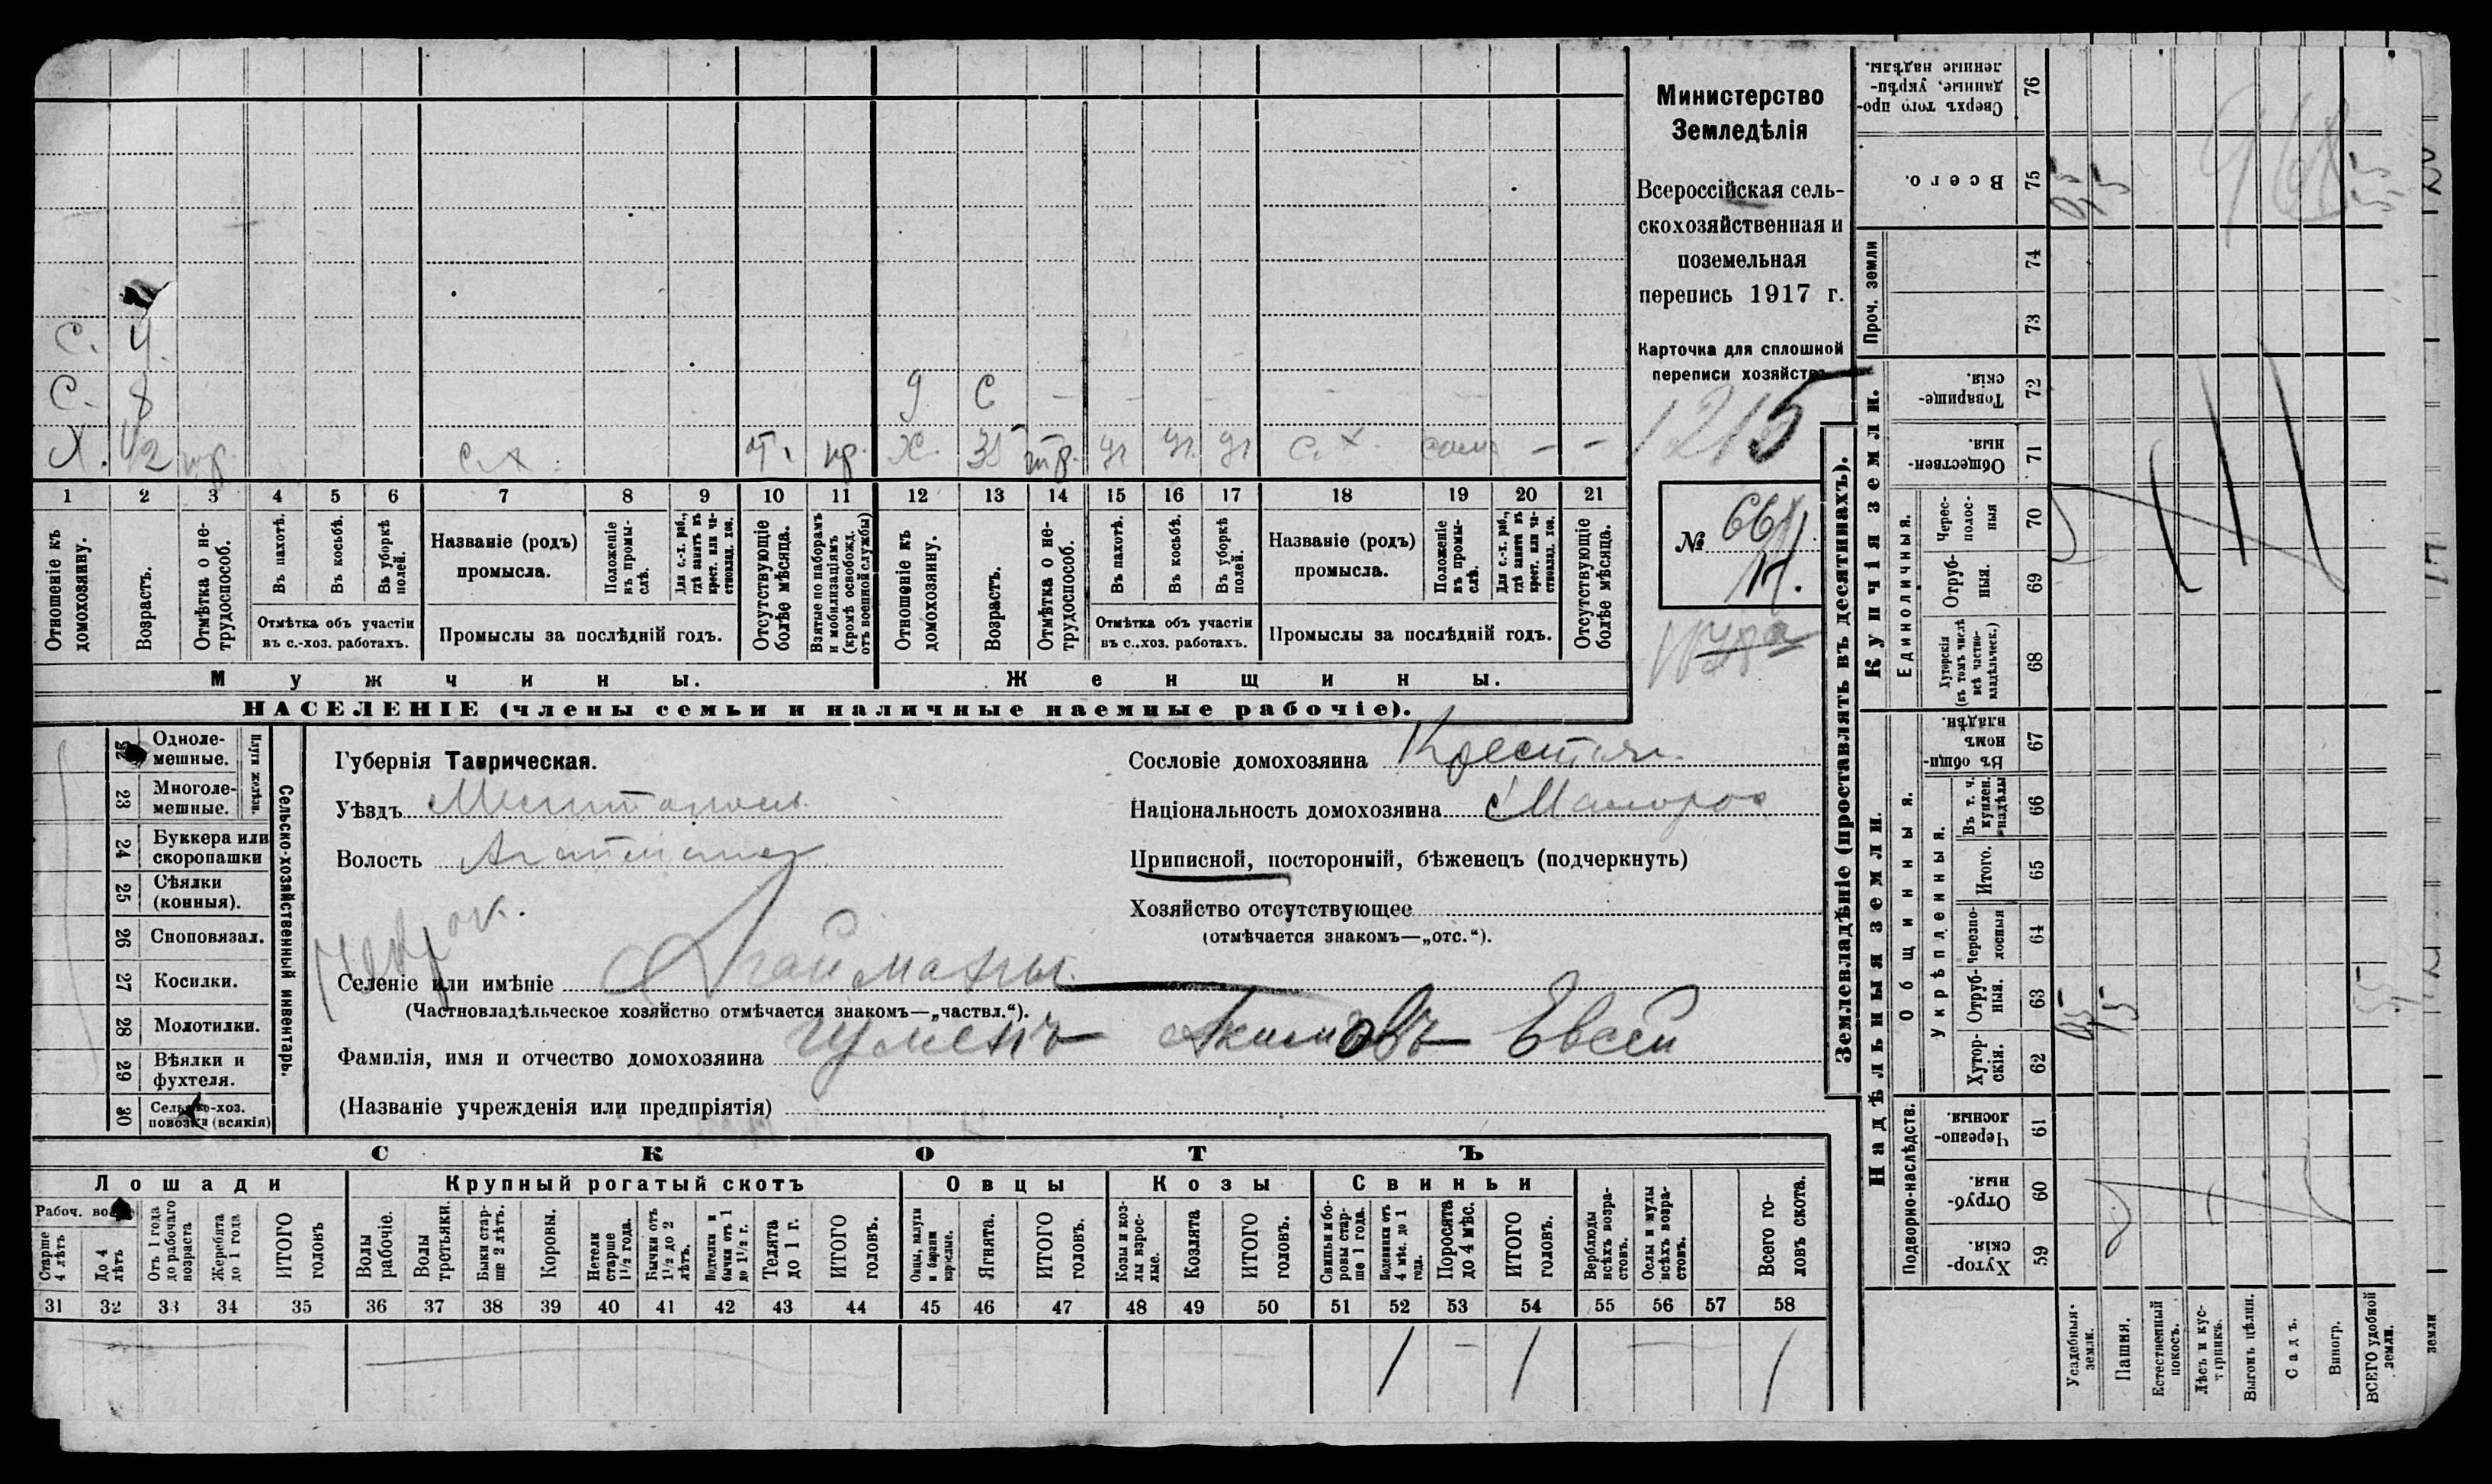 С. 4.
С. 8
Х. 42 тр. с.х. от. пр.
д С
Х. 35 тр. уч уч. уч с. х. сам — —
1 2 3 4 5 6 7 8 9 10 11 12 13 14 15 16 17 18 19 20 21
Отношеніе къ домохозяину.
Возрастъ.
Отмѣтка о не-трудоспособ.
Въ пахотѣ.
Въ косьбѣ.
Въ уборкѣ полей.
Отмѣтка объ участіи
въ с.-хоз. работахъ.
Названіе (родъ)
промысла.
Положеніе въ промы-слѣ.
Для с.-х. раб., гдѣ занятъ въ крест. или ча-стновлад. хоз.
Промыслы за послѣдній годъ.
Отсутствующіе болѣе мѣсяца.
Взятые по наборамъ и мобилизаціямъ (кромѣ освобожд. отъ военной службы)
Отношеніе къ домохозяину.
Возрастъ.
Отмѣтка о не-трудоспособ.
Въ пахотѣ.
Въ косьбѣ.
Въ уборкѣ полей.
Отмѣтка объ участіи
въ с.-хоз. работахъ.
Названіе (родъ)
промысла.
Положеніе въ промы-слѣ.
Для с.-х. раб., гдѣ занята въ крест. или ча-стновлад. хоз.
Промыслы за послѣдній годъ.
Отсутствующіе болѣе мѣсяца.
Мужчины.
Женщины.
НАСЕЛЕНІЕ (члены семьи и наличные наемные рабочіе).
Министерство
Земледѣлія
Всероссійская сель-
скохозяйственная и
поземельная
перепись 1917 г.
Карточка для сплошной
переписи хозяйствъ
1215
№
Сельско-хозяйственный инвентарь.
Плуги желѣзн.
22 Одноле-
мешные.
23 Многоле-
мешные.
24 Буккера или
скоропашки
25 Сѣялки
(конныя).
26 Сноповязал.
27 Косилки.
28 Молотилки.
29 Вѣялки и
фухтеля.
30 Сельско-хоз.
повозки (всякія)
Губернія Таврическая.
Уѣздъ Мелитополь
Волость Агайманская
Селеніе или имѣніе Агайманы
(Частновладѣльческое хозяйство отмѣчается знакомъ—„частвл.“).
Фамилія, имя и отчество домохозяина Гуменъ Акимовъ Евсей
(Названіе учрежденія или предпріятія)
Сословіе домохозяина Крестян.
Національность домохозяина Малорос
Приписной, посторонній, бѣженецъ (подчеркнуть)
Хозяйство отсутствующее
(отмѣчается знакомъ—„отс.“).
СКОТЪ
Лошади
Крупный рогатый скотъ
Овцы
Козы
Свиньи
Рабоч. возр.
Старше 4 лѣтъ
До 4 лѣтъ
Отъ 1 года до рабочаго возраста
Жеребята до 1 года
ИТОГО головъ
Волы рабочіе.
Волы третьяки.
Быки стар-ше 2 лѣтъ.
Коровы.
Нетели старше 1½ года.
Бычки отъ 1½ до 2 лѣтъ.
Подтелки и бычки отъ 1 до 1½ г.
Телята до 1 г.
ИТОГО головъ.
Овцы, валухи и бараны взрослые.
Ягнята.
ИТОГО головъ.
Козы и коз-лы взрос-лые.
Козлята
ИТОГО головъ.
Свиньи и бо-ровы стар-ше 1 года.
Подсвинки отъ 4 мѣс. до 1 года.
Поросята до 4 мѣс.
ИТОГО головъ.
Верблюды всѣхъ возра-стовъ.
Ослы и мулы всѣхъ возра-стовъ.
Всего го-ловъ скота.
31 32 33 34 35 36 37 38 39 40 41 42 43 44 45 46 47 48 49 50 51 52 53 54 55 56 57 58
1 – 1 — 1
Землевладѣніе (проставлять въ десятинахъ).
Купчія земли.
Надѣльныя земли.
Сверхъ того про-данные, укрѣп-ленные надѣлы. 76
Всего. 75
95
95
Проч. земли
74
73
Товарище-скія. 72
Обществен-ныя 71
Единоличныя.
Черес-полос-ныя 70
Отруб-ныя. 69
Хуторскія (въ томъ числѣ всѣ частно-владѣльческ.) 68
Общинныя.
Въ общин-номъ владѣн. 67
Укрѣпленныя.
Въ т. ч. куплен. надѣлы 66
Итого. 65
Черезпо-лосныя 64
Отруб-ныя. 63
95
95
Хутор-скія. 62
Подворно-наслѣдств.
Черезпо-лосныя. 61
Отруб-ныя. 60
Хутор-скія. 59
Усадебныя земли.
Пашня.
Естественный покосъ.
Лѣсъ и кус-тарникъ.
Выгонъ цѣлин.
Садъ.
Виногр.
ВСЕГО удобной земли.
земли